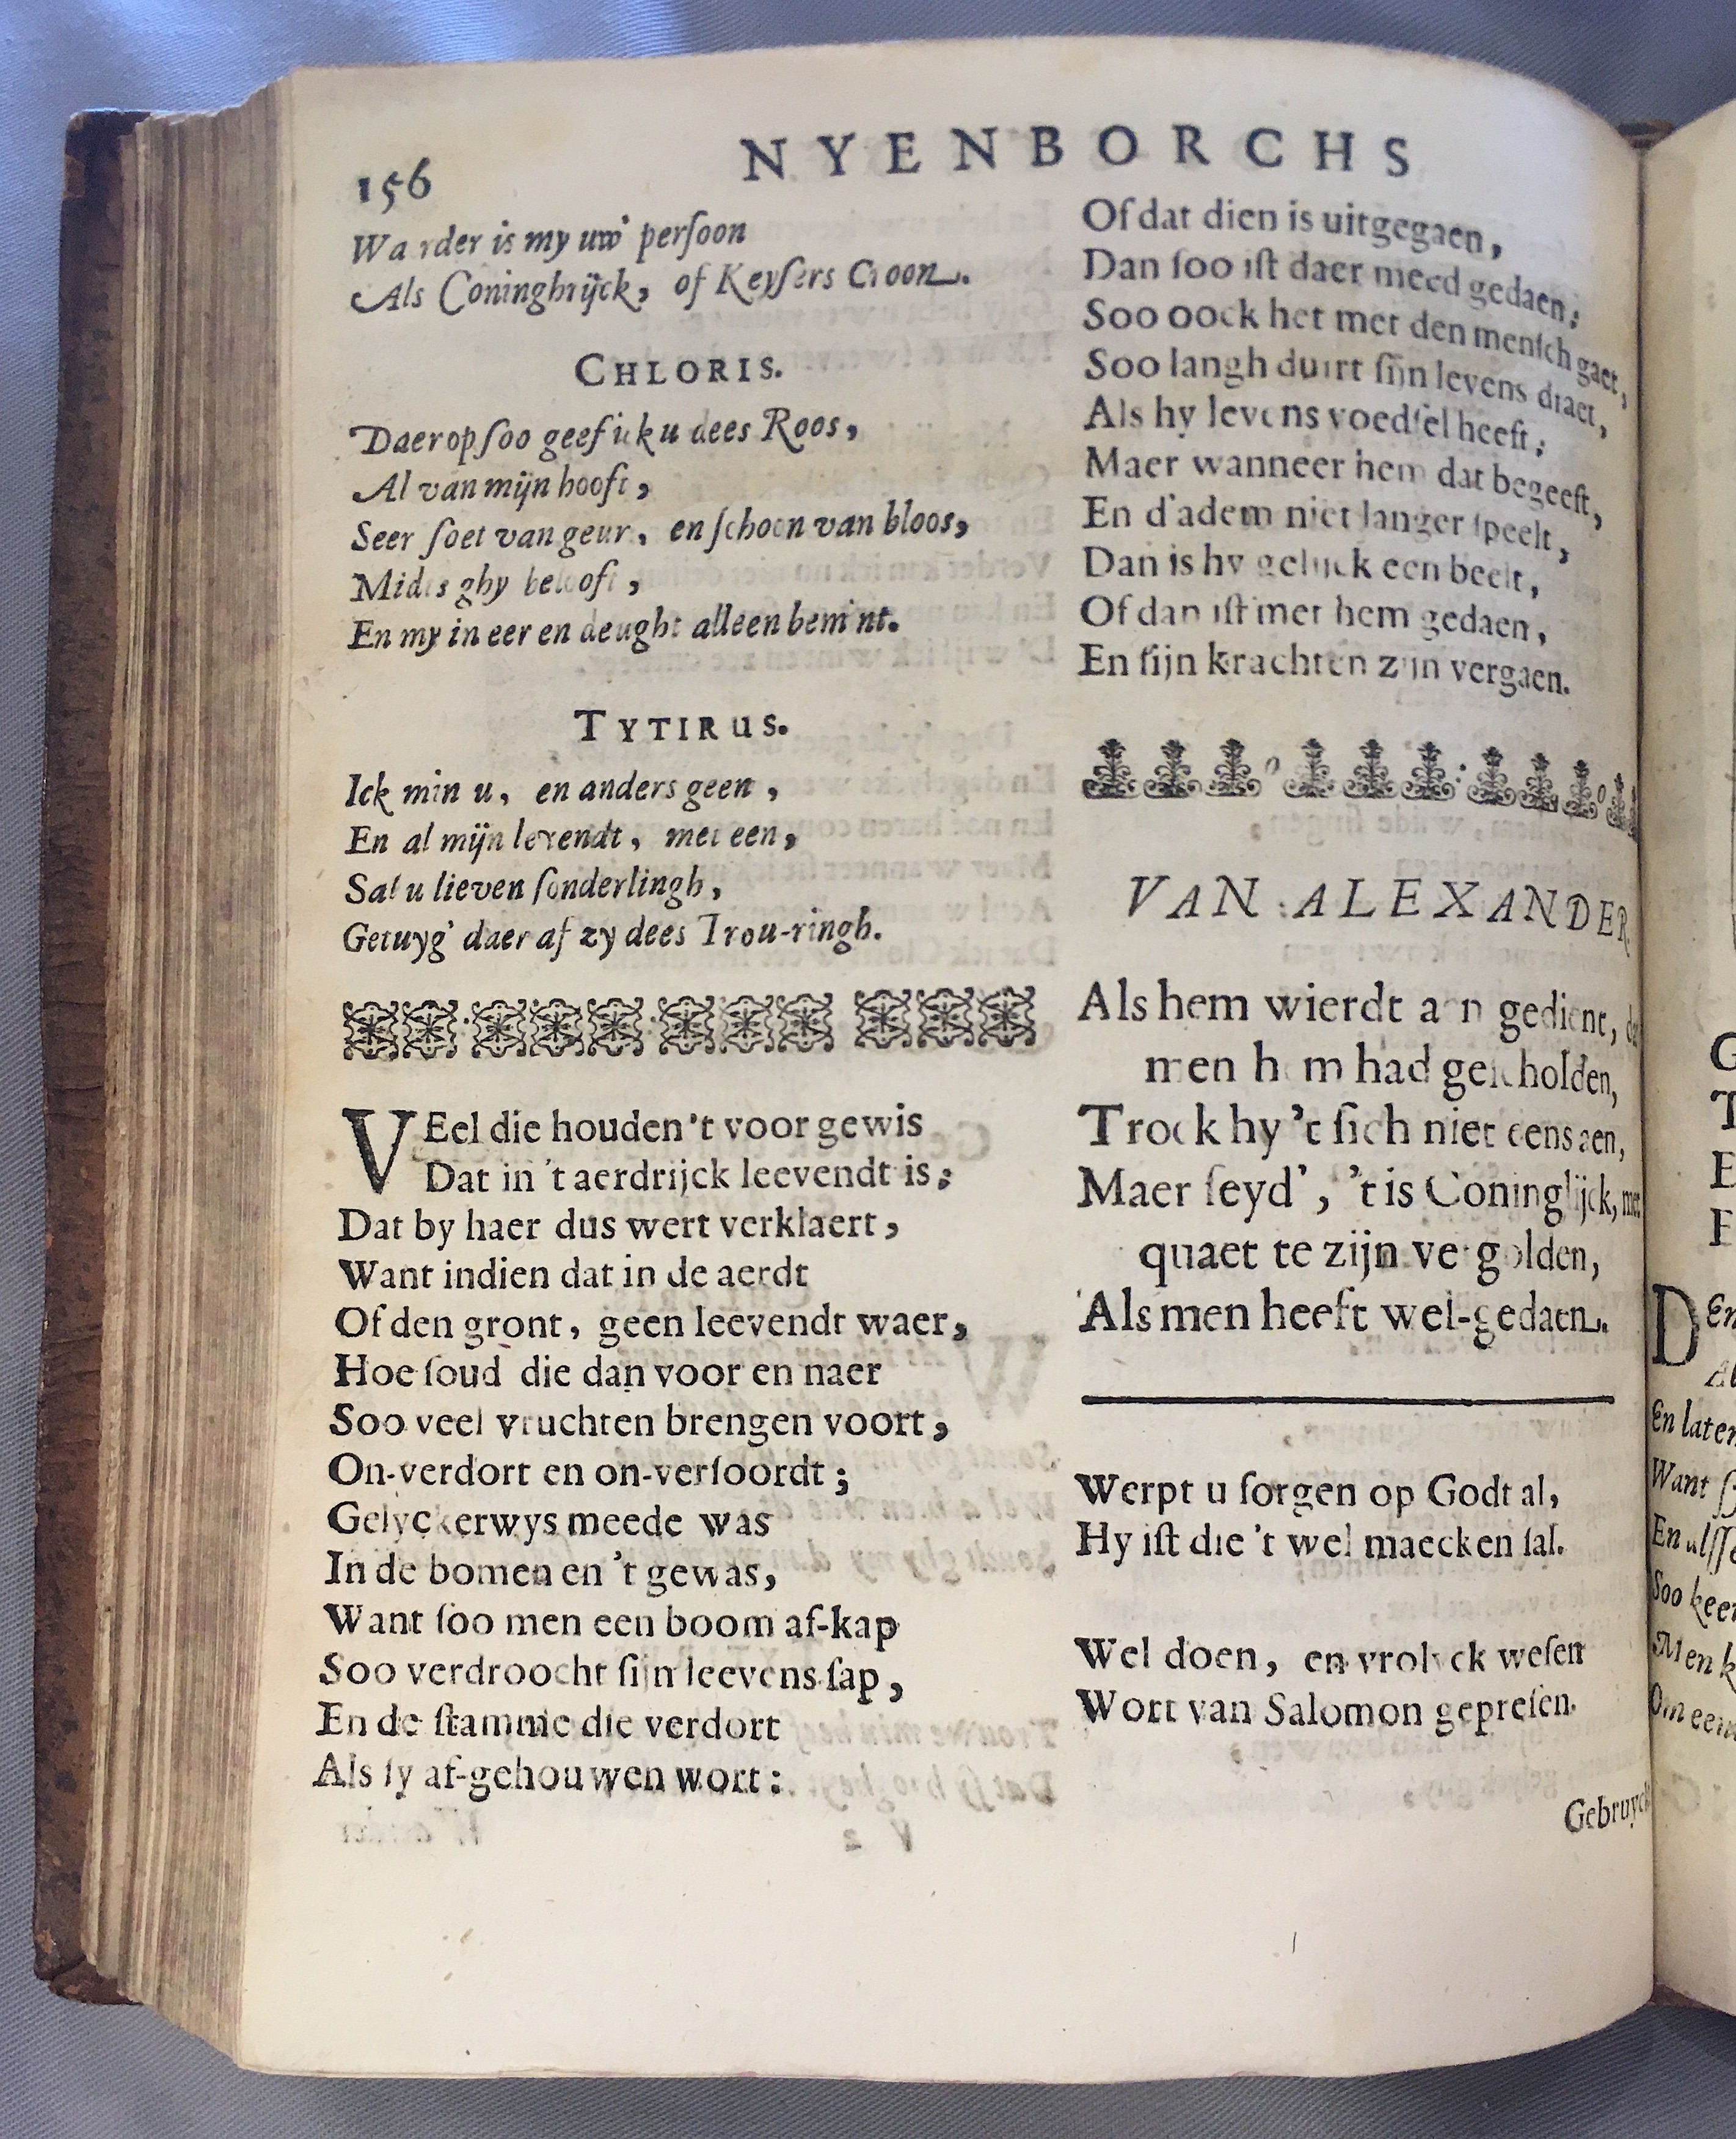 156
NYENBORCHS
Waerder is my uw' perſoon
Als Coninghrijck, of Keyſers Croon.
CHLORIS.
Daer op ſoo geef ick u dees Roos,
Al van mijn hooft,
Seer ſoet van geur, en ſchoon van bloos,
Midts ghy belooft,
En my in eer en deught alleen bemint.
TYTIRUS.
Ick min u, en anders geen,
En al mijn levendt, met een,
Sal u lieven ſonderlingh,
Getuyg' daer af zy dees Trou-ringh.
VEel die houden 't voor gewis
Dat in 't aerdrijck leevendt is;
Dat by haer dus wert verklaert,
Want indien dat in de aerdt
Of den gront, geen leevendt waer,
Hoe ſoud die dan voor en naer
Soo veel vruchten brengen voort,
On-verdort en on-verſoordt;
Gelyckerwys meede was
In de bomen en 't gewas,
Want ſoo men een boom af-kap
Soo verdroocht ſijn leevens ſap,
En de ſtamme die verdort
Als ſy af-gehouwen wort:
Of dat dien is uitgegaen,
Dan ſoo iſt daer meed gedaen;
Soo oock het met den menſch gaet,
Soo langh duirt ſijn levens draet,
Als hy levens voedſel heeft;
Maer wanneer hem dat begeeft,
En d'adem niet langer ſpeelt,
Dan is hy gelijck een beelt,
Of dan iſt met hem gedaen,
En ſijn krachten zijn vergaen.
VAN ALEXANDER
Als hem wierdt aen gedient,
men hem had geſcholden,
Trock hy 't ſich niet eens aen,
Maer ſeyd', 't is Coninglijck, met
quaet te zijn vergolden,
Als men heeft wel-gedaen.
Werpt u ſorgen op Godt al,
Hy iſt die 't wel maecken ſal.
Wel doen, en vrolyck weſen
Wort van Salomon gepreſen.
Gebruyck
D En
En laten
Want
Soo keer
Men k
Om een